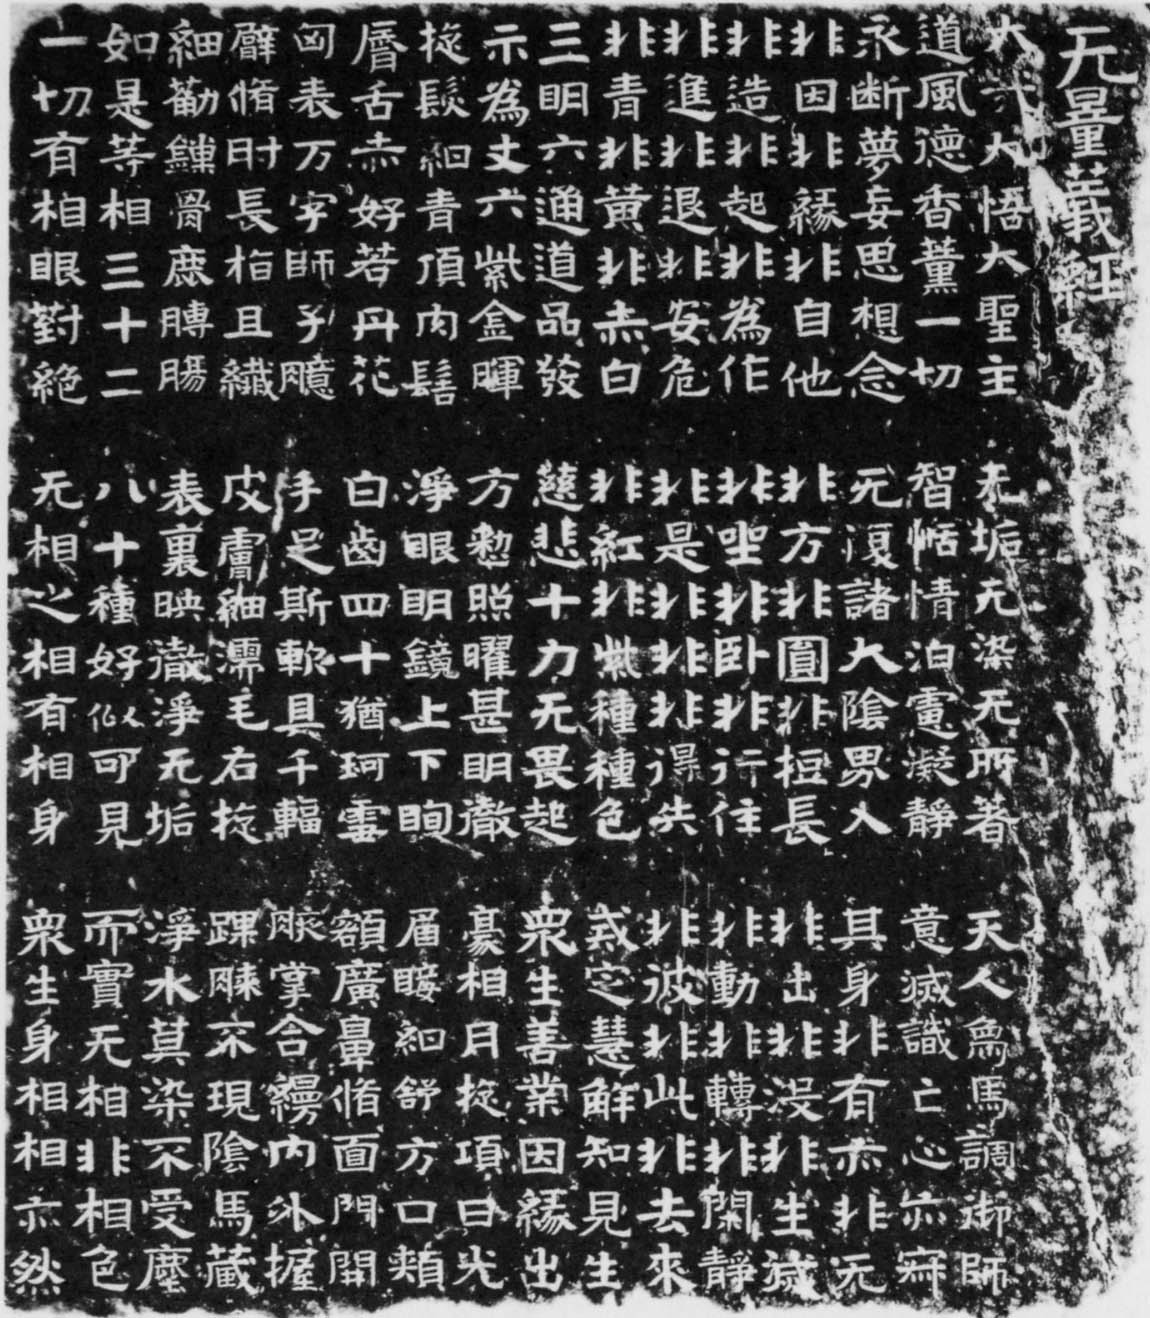 无量義経
大哉大悟大聖主　无垢无染无所著　天人象馬調御師
道風德香薰一切　智恬情泊慮凝靜　意滅識亡心亦寂
永断夢妄思想念　无復諸大陰界入　其身非有亦非无
非因非緣非自他　非方非圓非短長　非出非没非生滅
非造非起非為作　非坐非卧非行住　非動非轉非閑靜
非進非退非安危　非是非非非得失　非彼非此非去來
非青非黃非赤白　非紅非紫種種色　戒定慧解知見生
三明六通道品發　慈悲十力无畏起　衆生善業因緣出
示為丈六紫金暉　方整照曜甚明徹　豪相月旋項日光
旋髮紺青頂肉髻　淨眼明鏡上下眴　眉睫紺舒方口頰
脣舌赤好若丹花　白齒四十猶珂雪　額廣鼻脩面門開
匈表万字師子臆　手足斯軟具千輻　腋掌合縵內外握
臂脩肘長指且纖　皮膚細濡毛右旋　踝膝不現陰馬藏
細筋鏁骨鹿膊腸　表裏映徹淨无垢　淨水莫染不受塵
如是等相三十二　八十種好似可見　而實无相非相色
一切有相眼對絕　无相之相有相身　衆生身相相亦然